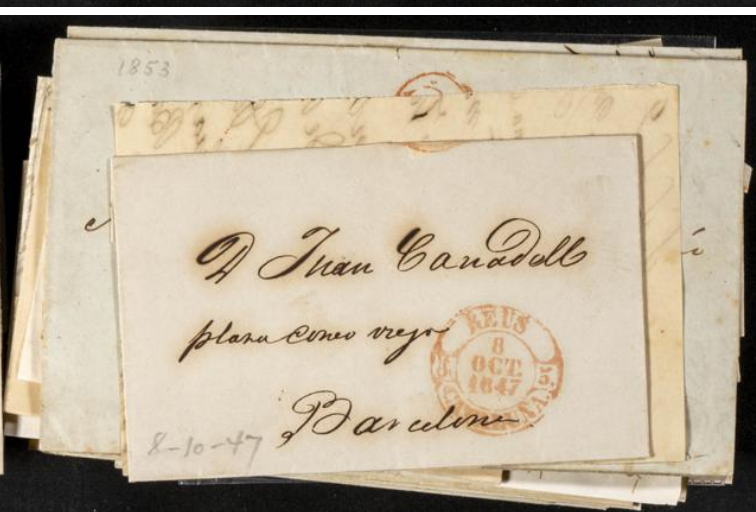 1853
D Juan Carradell
plaza Correo viejo
REUS
8
OCT.
1847
CATALUÑA.
Barcelona
8-10-47